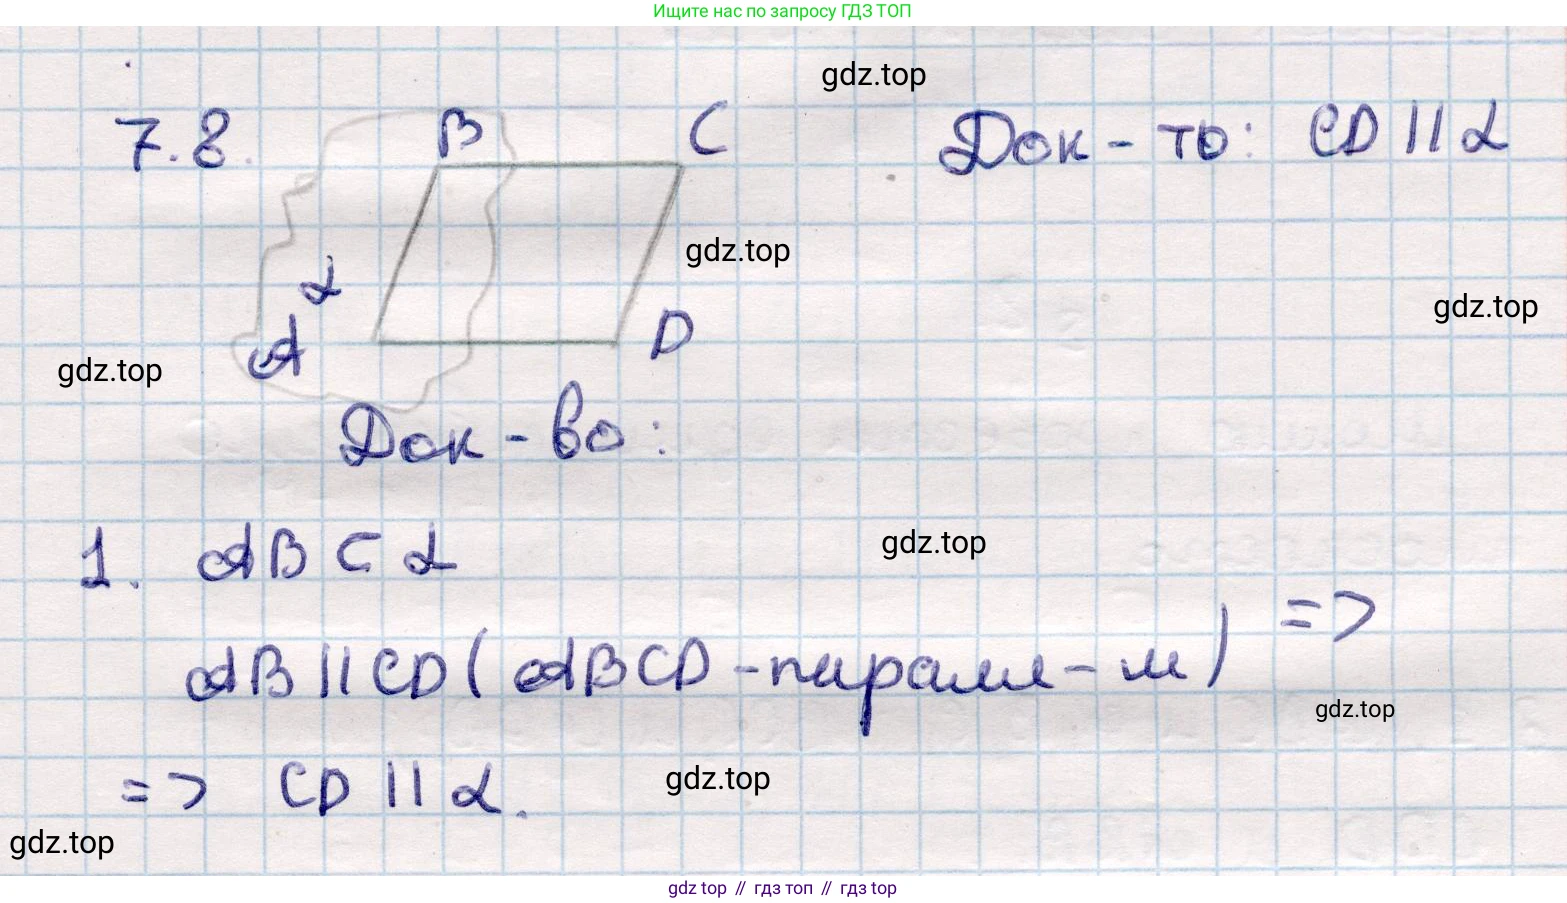 Ищите нас по запросу ГДЗ ТОП
gdz.top
7.8. B C Док-ть: CD || α
gdz.top
α
gdz.top
A D
gdz.top
Док-во:
1. AB ⊂ α
gdz.top
AB || CD (ABCD - паралл-м) =>
gdz.top
=> CD || α.
gdz.top
gdz.top
gdz top // гдз топ // гдз top